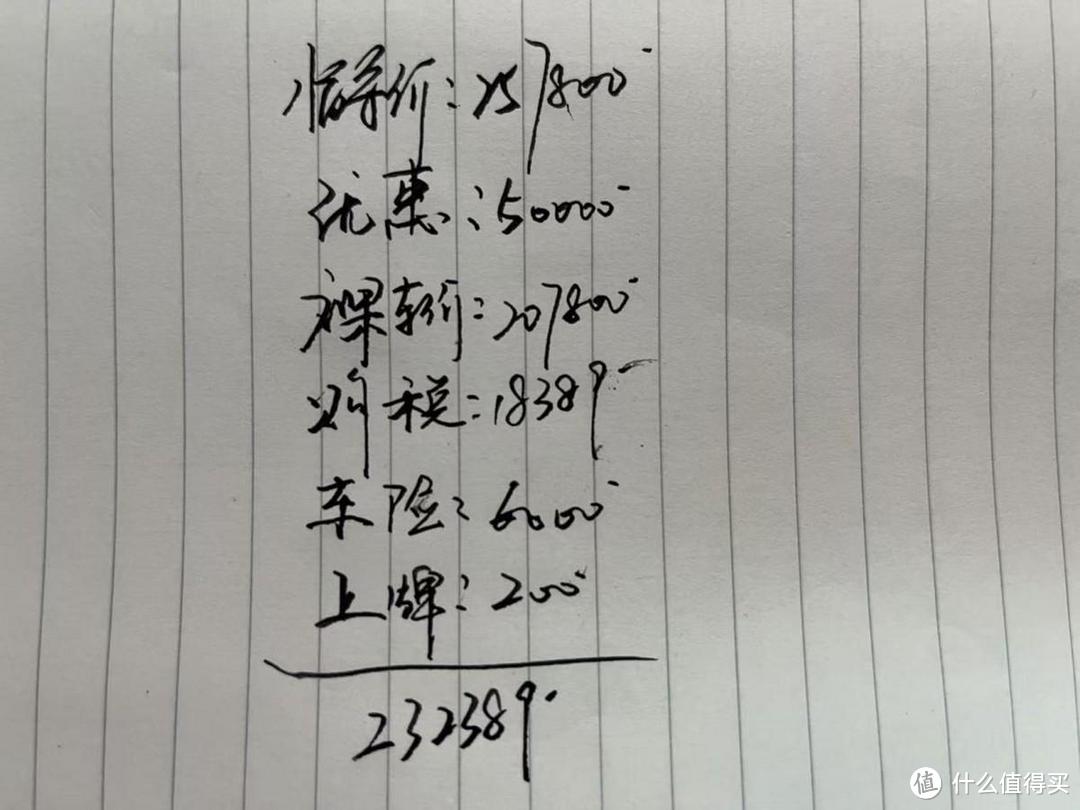 指导价:257800
优惠:50000
裸车价:207800
购税:18389
车险:6000
上牌:200
232389
值 什么值得买